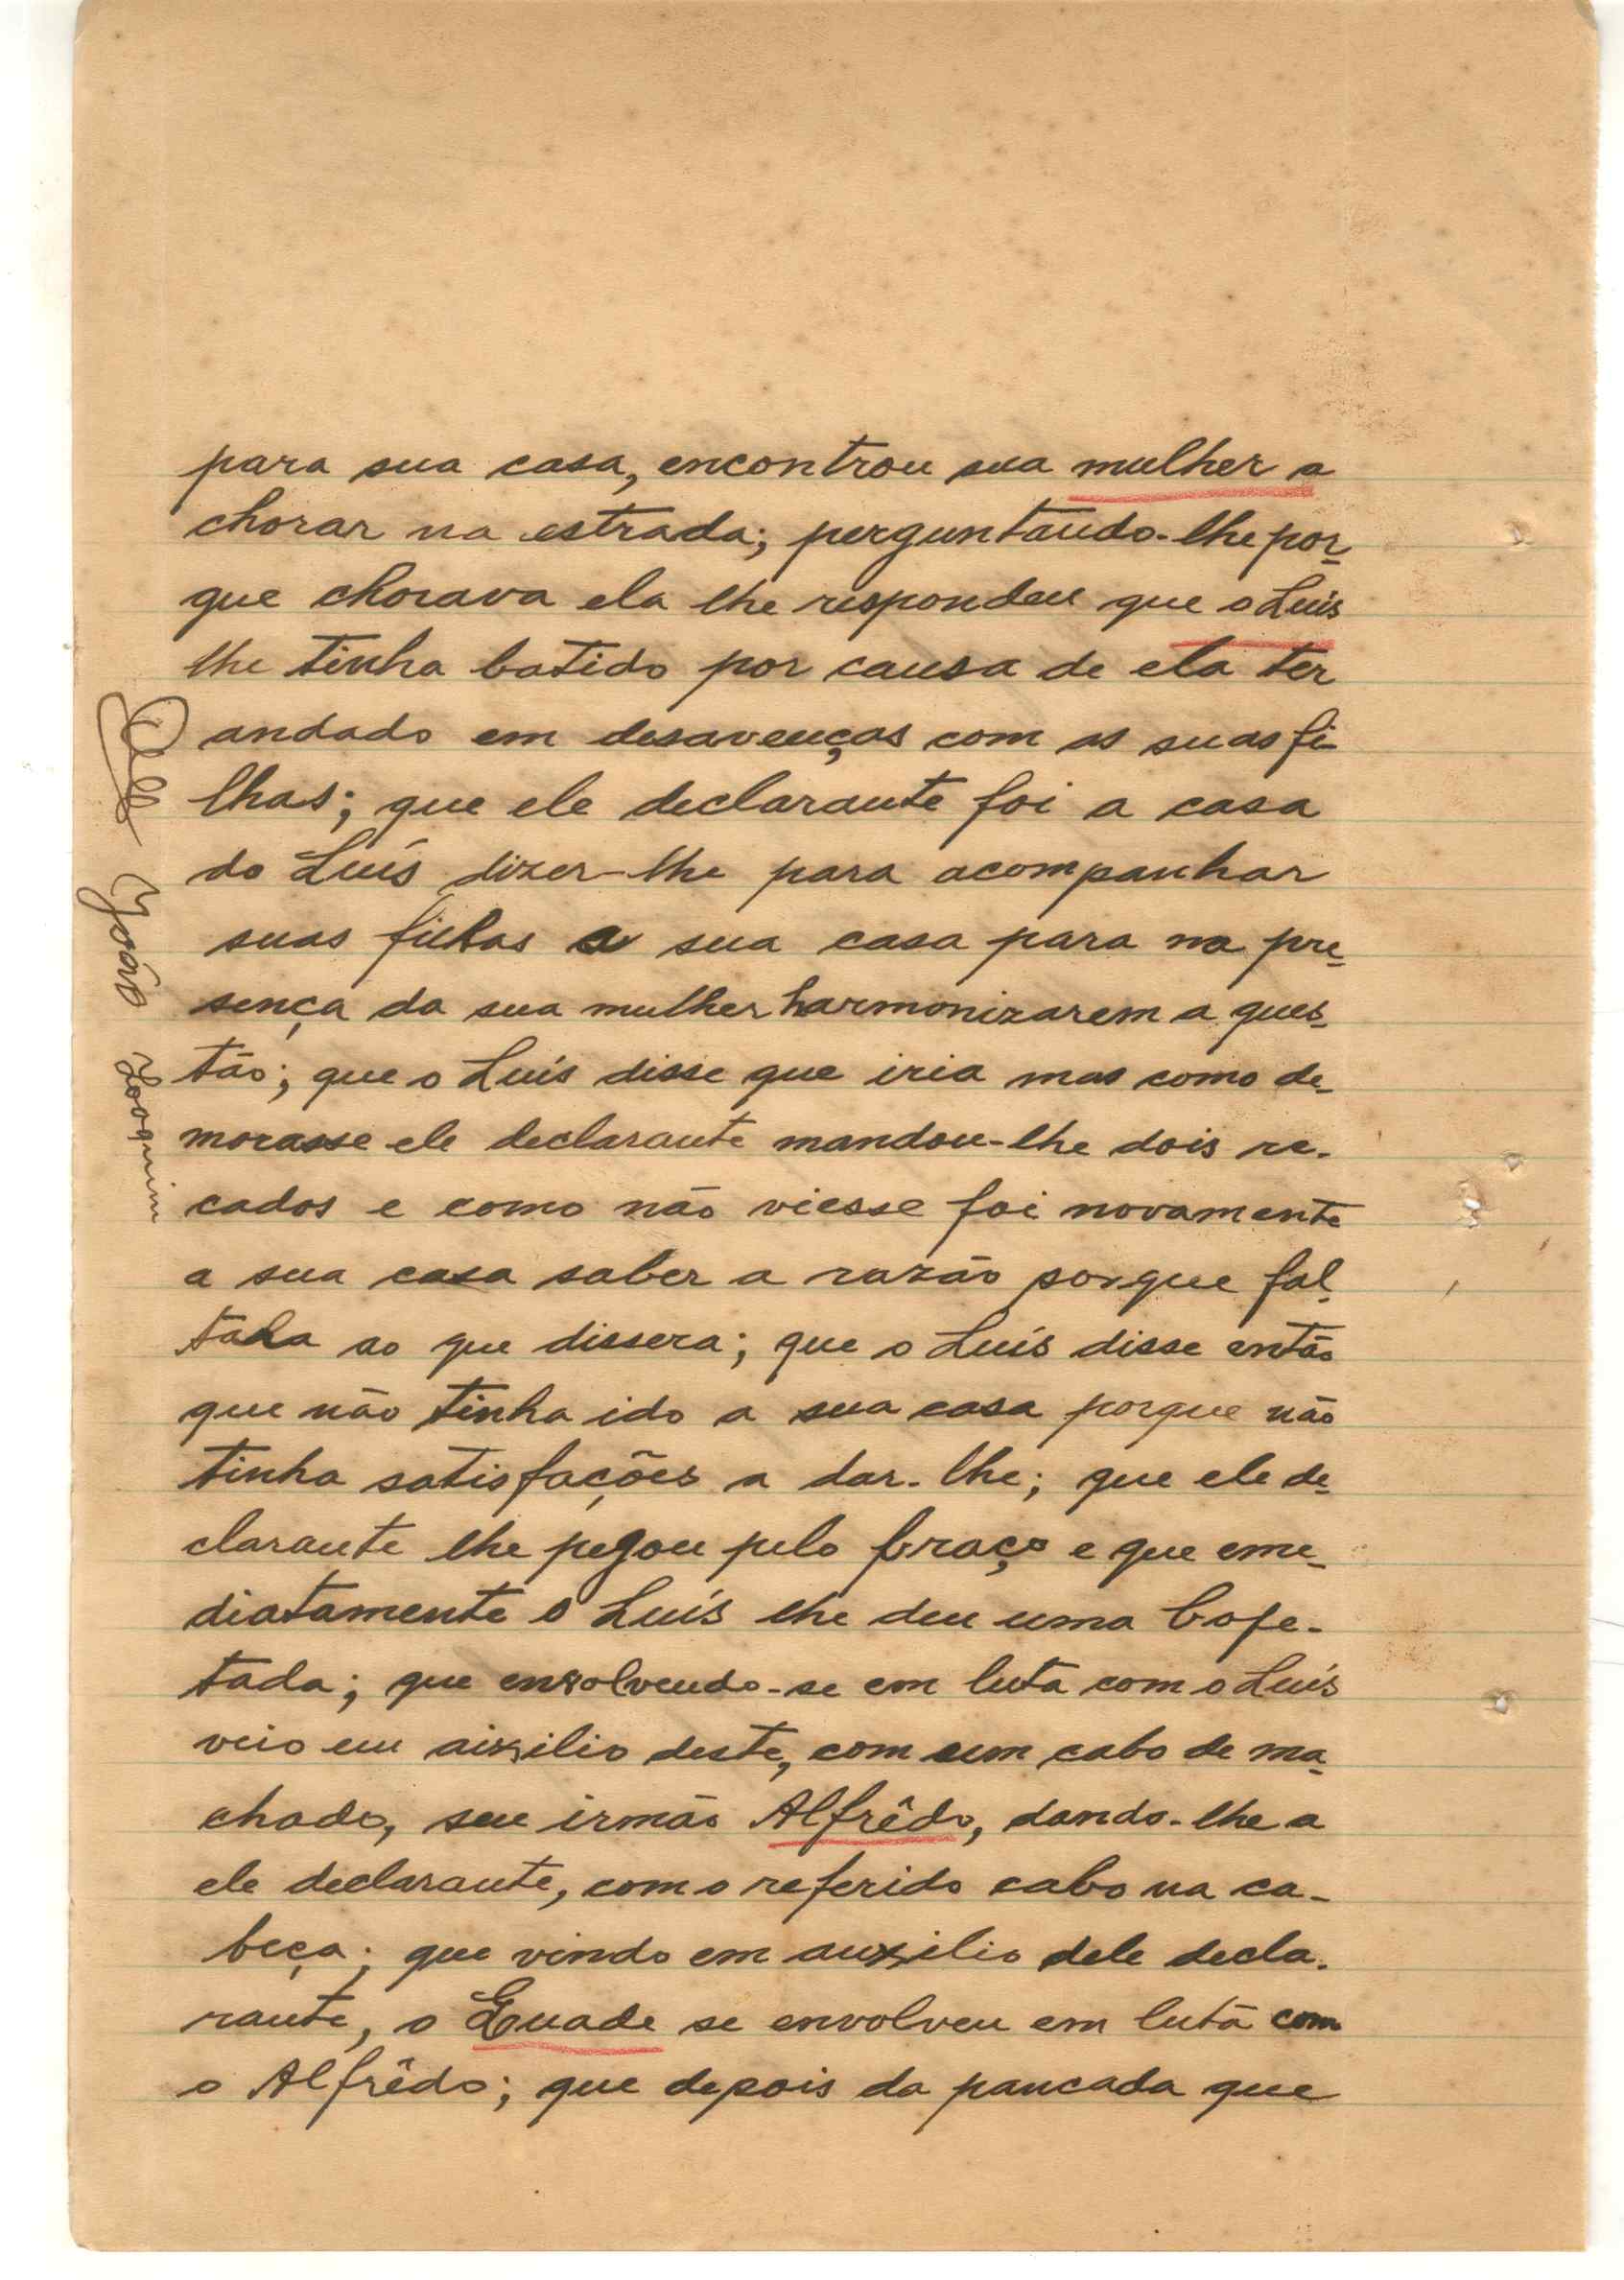 para sua casa, encontrou sua mulher a
chorar na estrada; perguntando-lhe por-
que chorava ela lhe respondeu que o Luís
lhe tinha batido por causa de ela ter
andado em desavenças com as suas fi-
lhas; que ele declarante foi a casa
do Luís dizer-lhe para acompanhar
suas filhas a sua casa para na pre-
sença da sua mulher harmonizarem a ques-
tão; que o Luís disse que iria mas como de-
morasse ele declarante mandou-lhe dois re-
cados e como não viesse foi novamente
a sua casa saber a razão porque fal-
tara ao que dissera; que o Luís disse então
que não tinha ido a sua casa porque não
tinha satisfações a dar-lhe; que ele de-
clarante lhe pegou pelo braço e que eme-
diatamente o Luís lhe deu uma bofe-
tada; que envolvendo-se em luta com o Luís
veio em aixilio deste, com um cabo de ma-
chado, seu irmão Alfrêdo, dando-lhe a
ele declarante, com o referido cabo na ca-
beça; que vindo em auxilio dele decla-
rante, o Enade se envolveu em luta com
o Alfrêdo; que depois da pancada que
João Joaquim